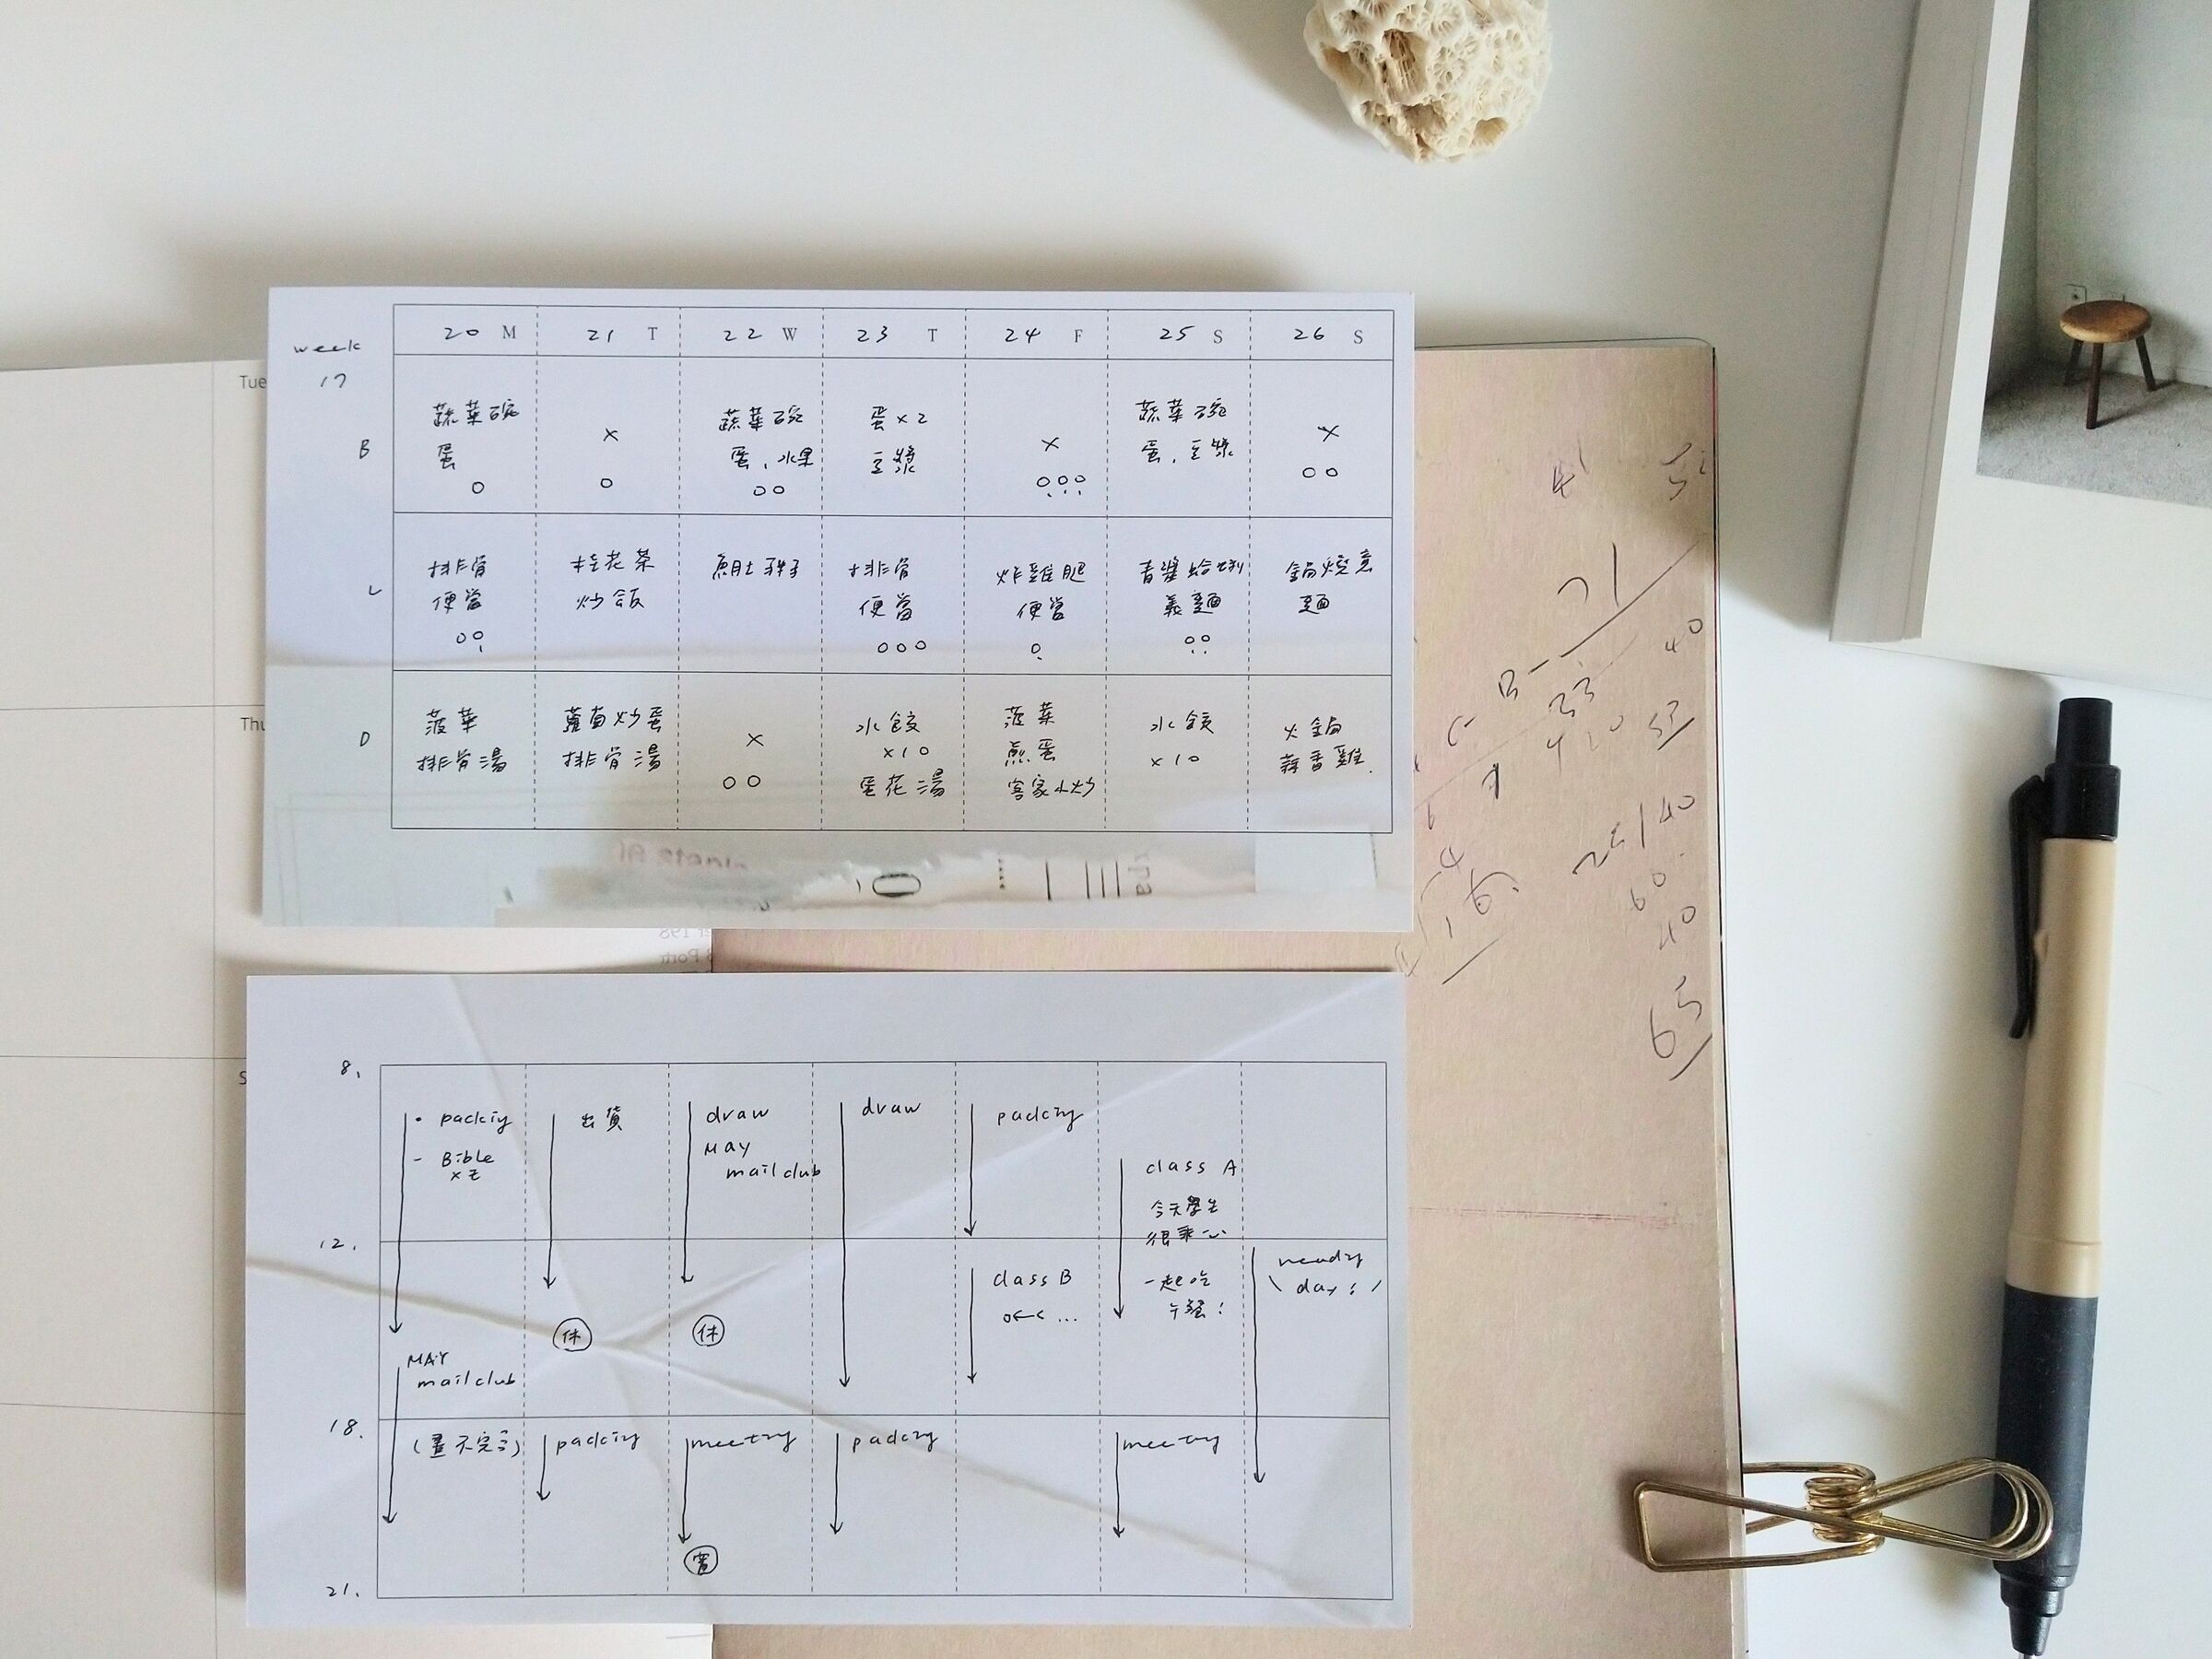 week
17
20 M
21 T
22 W
23 T
24 F
25 S
26 S
B
蔬菜碗
蛋
○
×
○
蔬菜碗
蛋、水果
○○
蛋×2
豆漿
×
○○○
蔬菜碗
蛋、豆漿
×
○○
L
排骨
便當
○○
桂花茶
炒飯
排骨
便當
○○○
炸雞腿
便當
○
青醬蛤蜊
義麵
○○
鍋燒意
麵
D
菠菜
排骨湯
蘿蔔炒蛋
排骨湯
×
○○
水餃
×10
蛋花湯
菠菜
煎蛋
客家小炒
水餃
×10
火鍋
蒜香雞.
Tue
Thu
S
8.
12.
18.
21.
• packing
- Bible
MAY
mail club
(畫不完)
出貨
休
packing
draw
MAY
mail club
休
meeting
draw
packing
packing
class B
class A
今天學生
很乖
一起吃
午餐!
meeting
ready
day
21
33
40
420
53
25/40
60
40
65